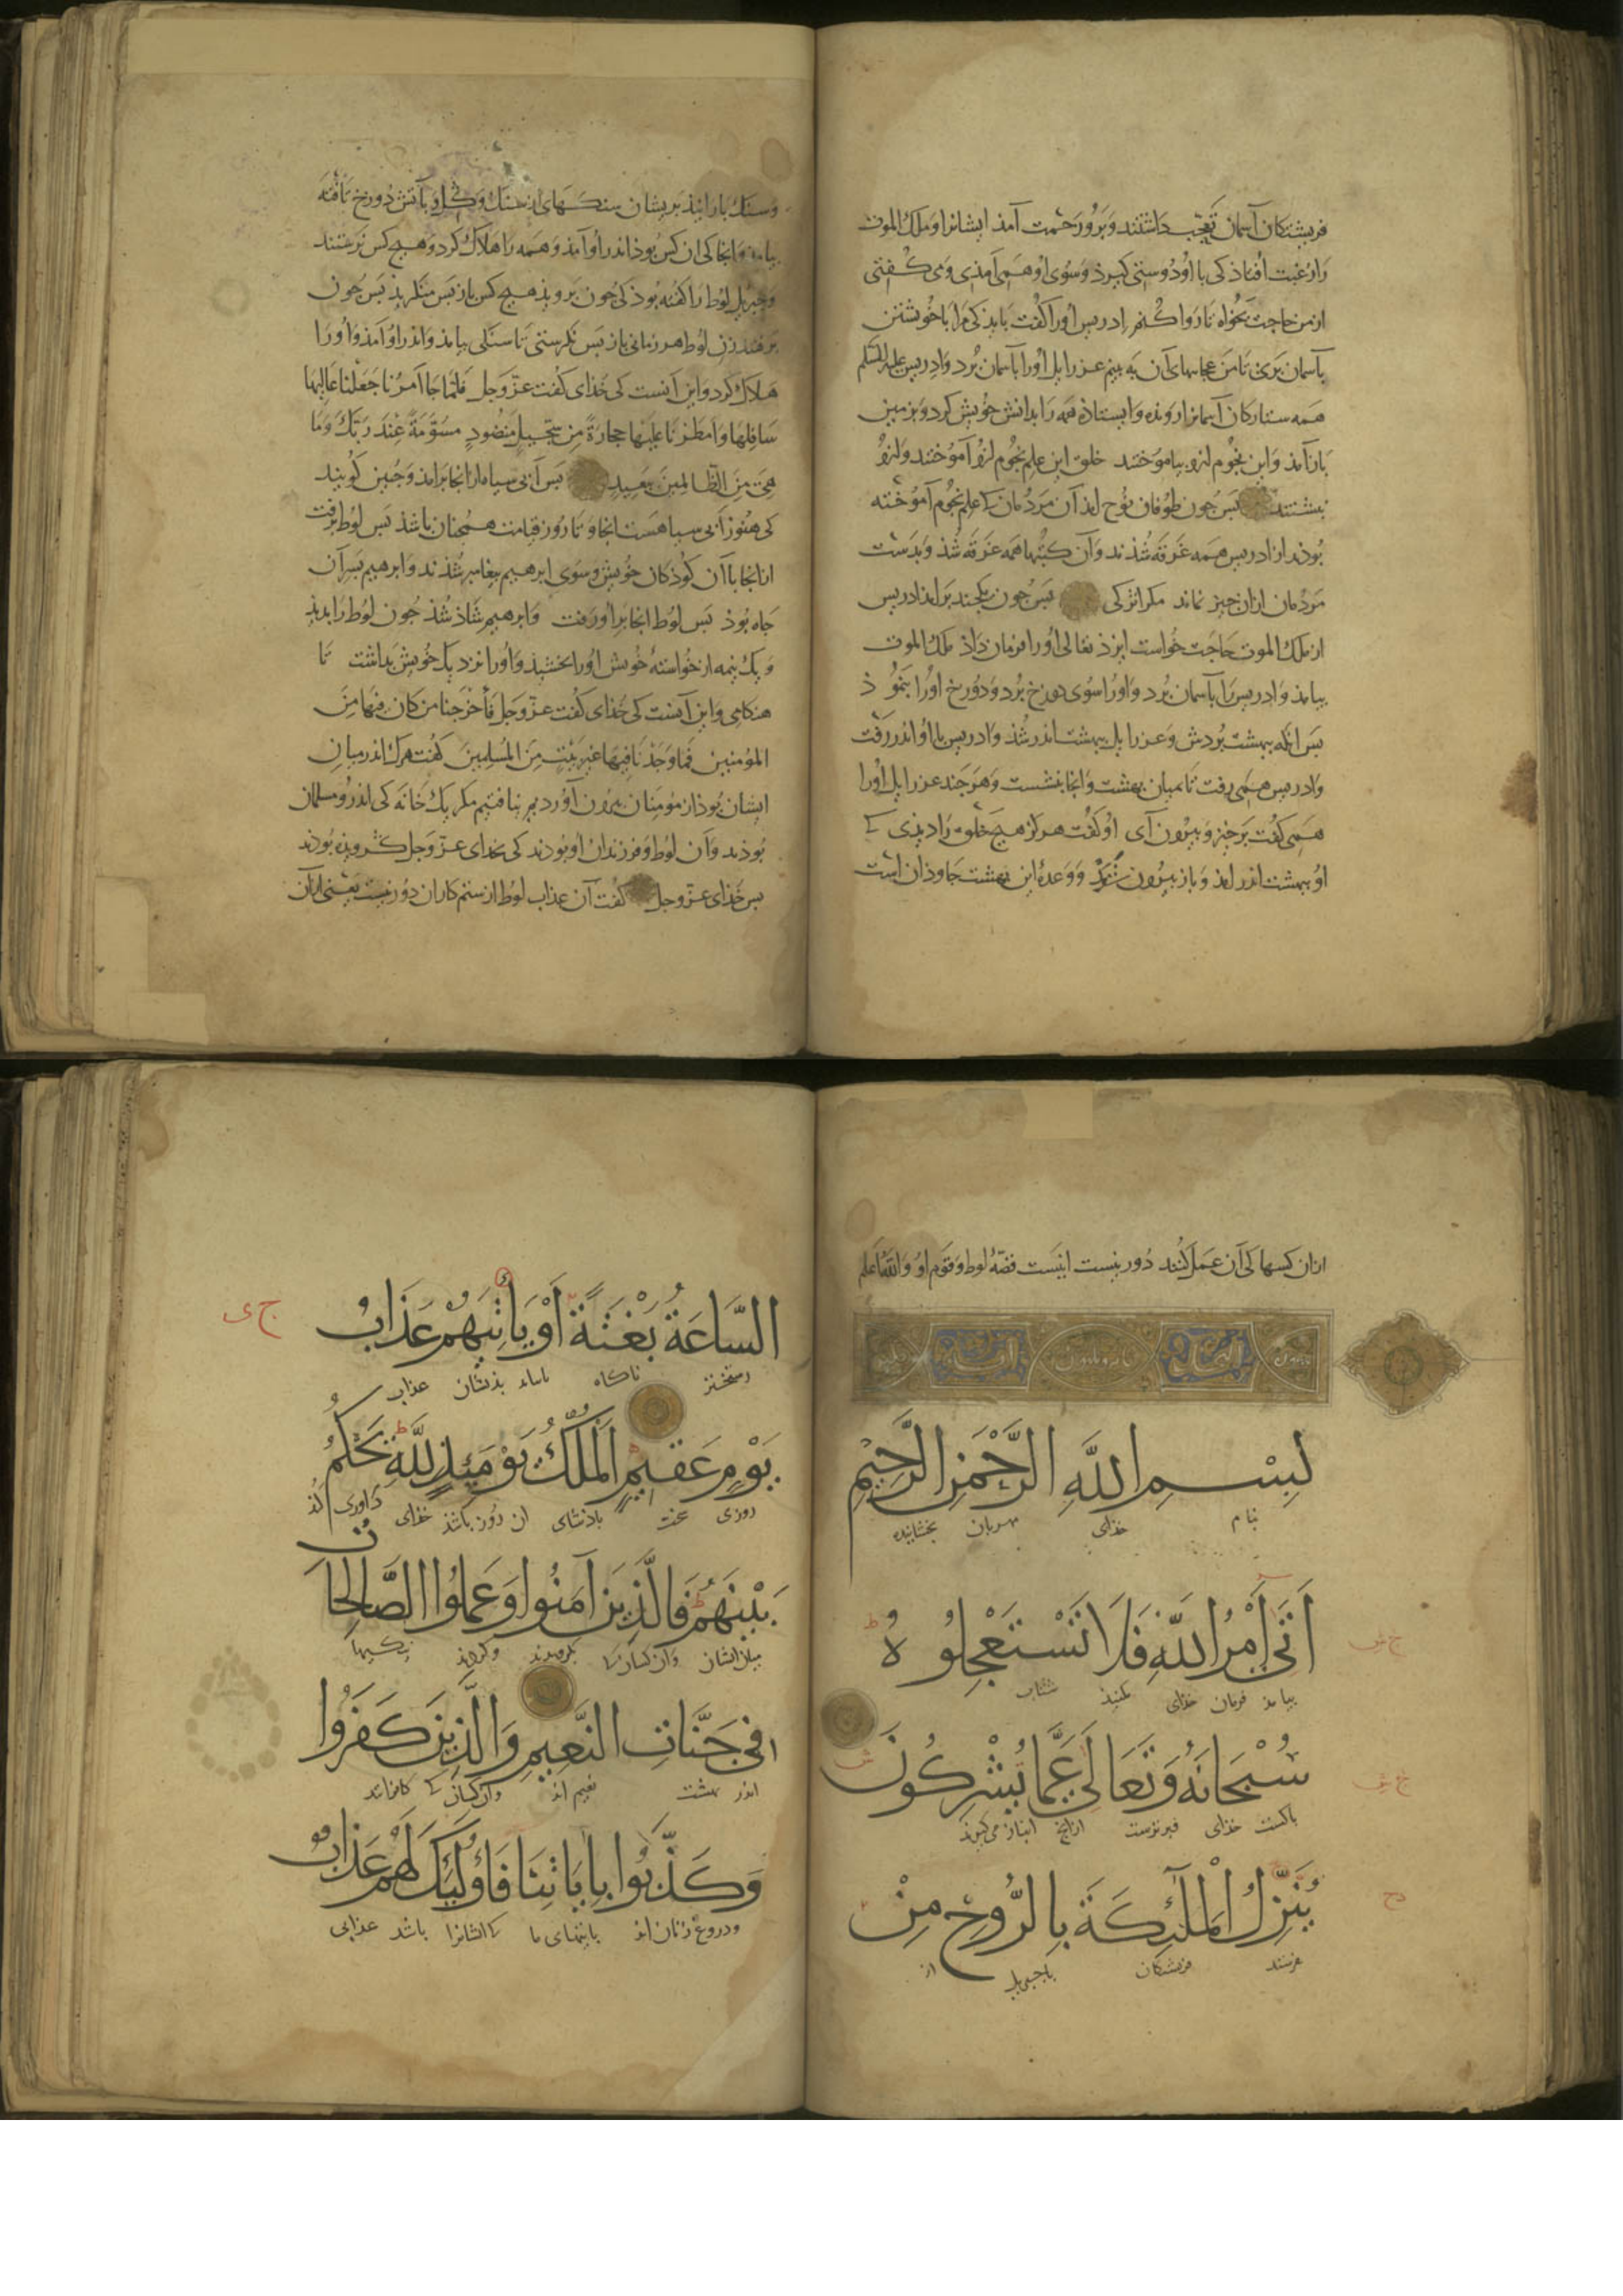 فریشتکان آسمان تعجب داشتند وبرو رحمت آمد ایشانرا وملک الموت
را رغبت افتاذ کی با او دوستی کیرذ وسوی او همی آمذی ومی کفتی
از من حاجت بخواه تا روا کنم ادریس اورا کفت بایذ کی مرا با خویشتن
بآسمان بری تا من عجایبهای آن به بینم عزرایل اورا بآسمان برد وادریس علیه السلم
همه ستارکان آسمانرا رونده وایستاذه همه را بدانش خویش کرد وبزمین
بازآمذ واین نجوم ازو بیاموختند خلق این علم نجوم ازو آموختند وازو
نبشتند پس جون طوفان نوح آمذ آن مردمان کی علم نجوم آموخته
بوذند از ادریس همه غرقه شذند وآن کتبها همه غرقه شذ وبدست
مردمان ازان جیز نماند مکر اندکی پس جون یکجند برآمذ ادریس
از ملک الموت حاجت خواست ایزذ تعالی اورا فرمان داذ ملک الموت
بیامذ وادریس را بآسمان برد واورا سوی دوزخ برد ودوزخ اورا بنموذ
پس انکه ببهشت بردش وعزرایل ببهشت اندر شذ وادریس با او اندر رفت
وادریس همی رفت تا میان بهشت وانجا بنشست وهر جند عزرایل اورا
همی کفت برخیز وبیرون آی او کفت هرکز هیچ خلق را دیذی کی
او ببهشت اندر آمذ وباز بیرون شذ ووعدۀ این بهشت جاوذان است
وسنک بارانیذ بریشان سنکهای از سنک وکل وبآتش دوزخ تافته
بیامذ وانجا کی ان کس بوذ اندر او آمذ وهمه را هلاک کرد وهیج کس نرستند
وجبریل لوط را کفته بوذ کی جون بروید هیج کس باز پس منکرید پس جون
برفتند زن لوط هر زمانی باز پس نکرستی تا سنکی بیامذ واندر او آمذ واورا
هلاک کرد واین آنست کی خذای کفت عز وجل فلما جا امرنا جعلنا عالیها
سافلها وامطرنا علیها حجارة من سجیل منضود مسومة عند ربک وما
هی من الظالمین ببعید پس آبی سیاه از انجا برآمذ وجنین کویند
کی هنوز آبی سیا هست انجا وتا روز قیامت همجنان باشذ پس لوط برفت
از انجا با آن کوذکان خویش وسوی ابرهیم پیغامبر شذند وابرهیم بسر آن
جاه بوذ پس لوط انجا بر او رفت وابرهیم شاذ شذ جون لوط را بدیذ
ویک نیمه از خواستۀ خویش اورا بخشیذ واورا نزدیک خویش بداشت تا
هنکامی واین آنست کی خذای کفت عز وجل فأخرجنا من کان فیها من
المؤمنین فما وجدنا فیها غیر بیت من المسلمین کفت هرک اندر میان
ایشان بوذ از مومنان بیرون آوردیم نیافتیم مکر یک خانه کی اندرو مسلمان
بوذند وآن لوط وفرزندان او بوذند کی بخدای عز وجل کرویذه بوذند
پس خذای عز وجل کفت آن عذاب لوط از ستم کاران دور نیست یعنی از آن
ازان کسها کی آن عمل کنند دور نیست اینست قصۀ لوط وقوم او والله اعلم
بِسْمِ اللَّهِ الرَّحْمَنِ الرَّحِيمِ
بنام خذای مهربان بخشاینده
أَتَى أَمْرُ اللَّهِ فَلَا تَسْتَعْجِلُوهُ
بیامذ فرمان خذای مکنیذ شتاب
سُبْحَانَهُ وَتَعَالَى عَمَّا يُشْرِكُونَ
باکست خذای وبرترست ازانج انباز می کیرند
يُنَزِّلُ الْمَلَائِكَةَ بِالرُّوحِ مِنْ
فرستد فریشتکان باجبریل از
السَّاعَةُ بَغْتَةً أَوْ يَأْتِيَهُمْ عَذَابُ
رستخیز ناکاه یا بیاید بذیشان عذاب
يَوْمٍ عَقِيمٍ الْمُلْكُ يَوْمَئِذٍ لِلَّهِ يَحْكُمُ
روزی باذشای ان روز باشذ خذای داوری کند
بَيْنَهُمْ فَالَّذِينَ آمَنُوا وَعَمِلُوا الصَّالِحَاتِ
میان ایشان وآن کسان کی بکرویدند وکردند نیکیها
فِي جَنَّاتِ النَّعِيمِ وَالَّذِينَ كَفَرُوا
اندر بهشت نعیم اند وان کسان کی کافراند
وَكَذَّبُوا بِآيَاتِنَا فَأُولَئِكَ لَهُمْ عَذَابٌ
ودروغ زنان اند بآیتهای ما ایشانرا باشد عذابی